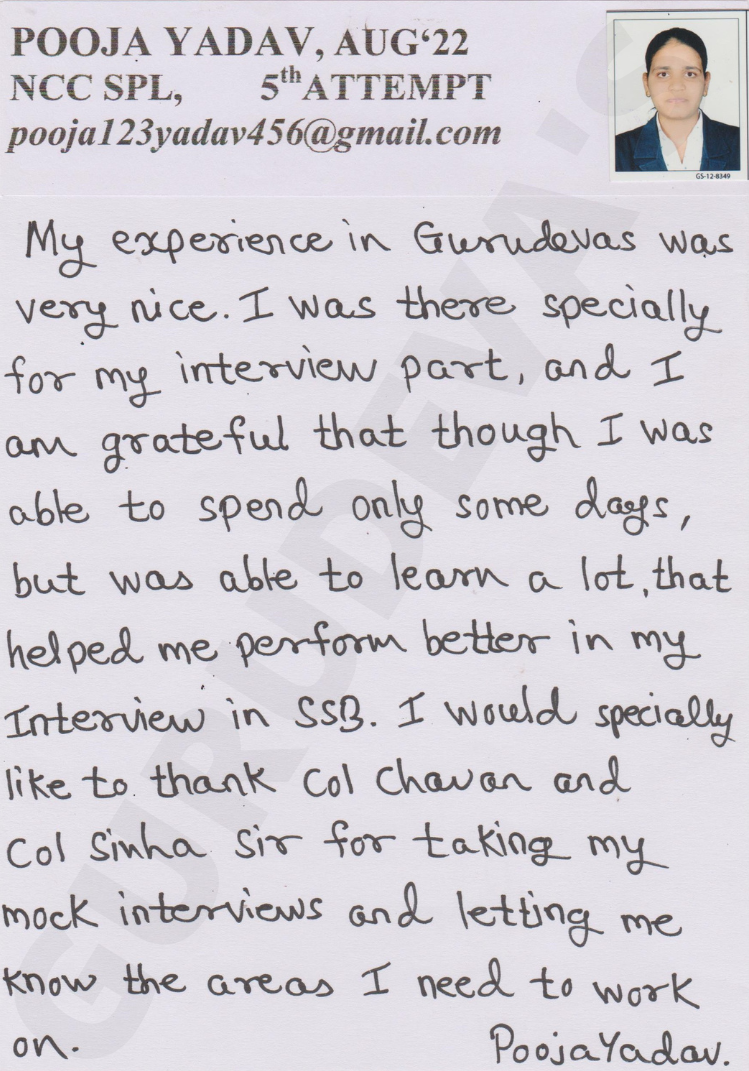 POOJA YADAV, AUG‘22
NCC SPL, 5th ATTEMPT
pooja123yadav456@gmail.com
GS-12-8349
My experience in Gurudevas was
very nice. I was there specially
for my interview part, and I
am grateful that though I was
able to spend only some days,
but was able to learn a lot, that
helped me perform better in my
Interview in SSB. I would specially
like to thank Col Chavan and
Col Sinha Sir for taking my
mock interviews and letting me
know the areas I need to work
on. Pooja Yadav.
GURUDEVA'S